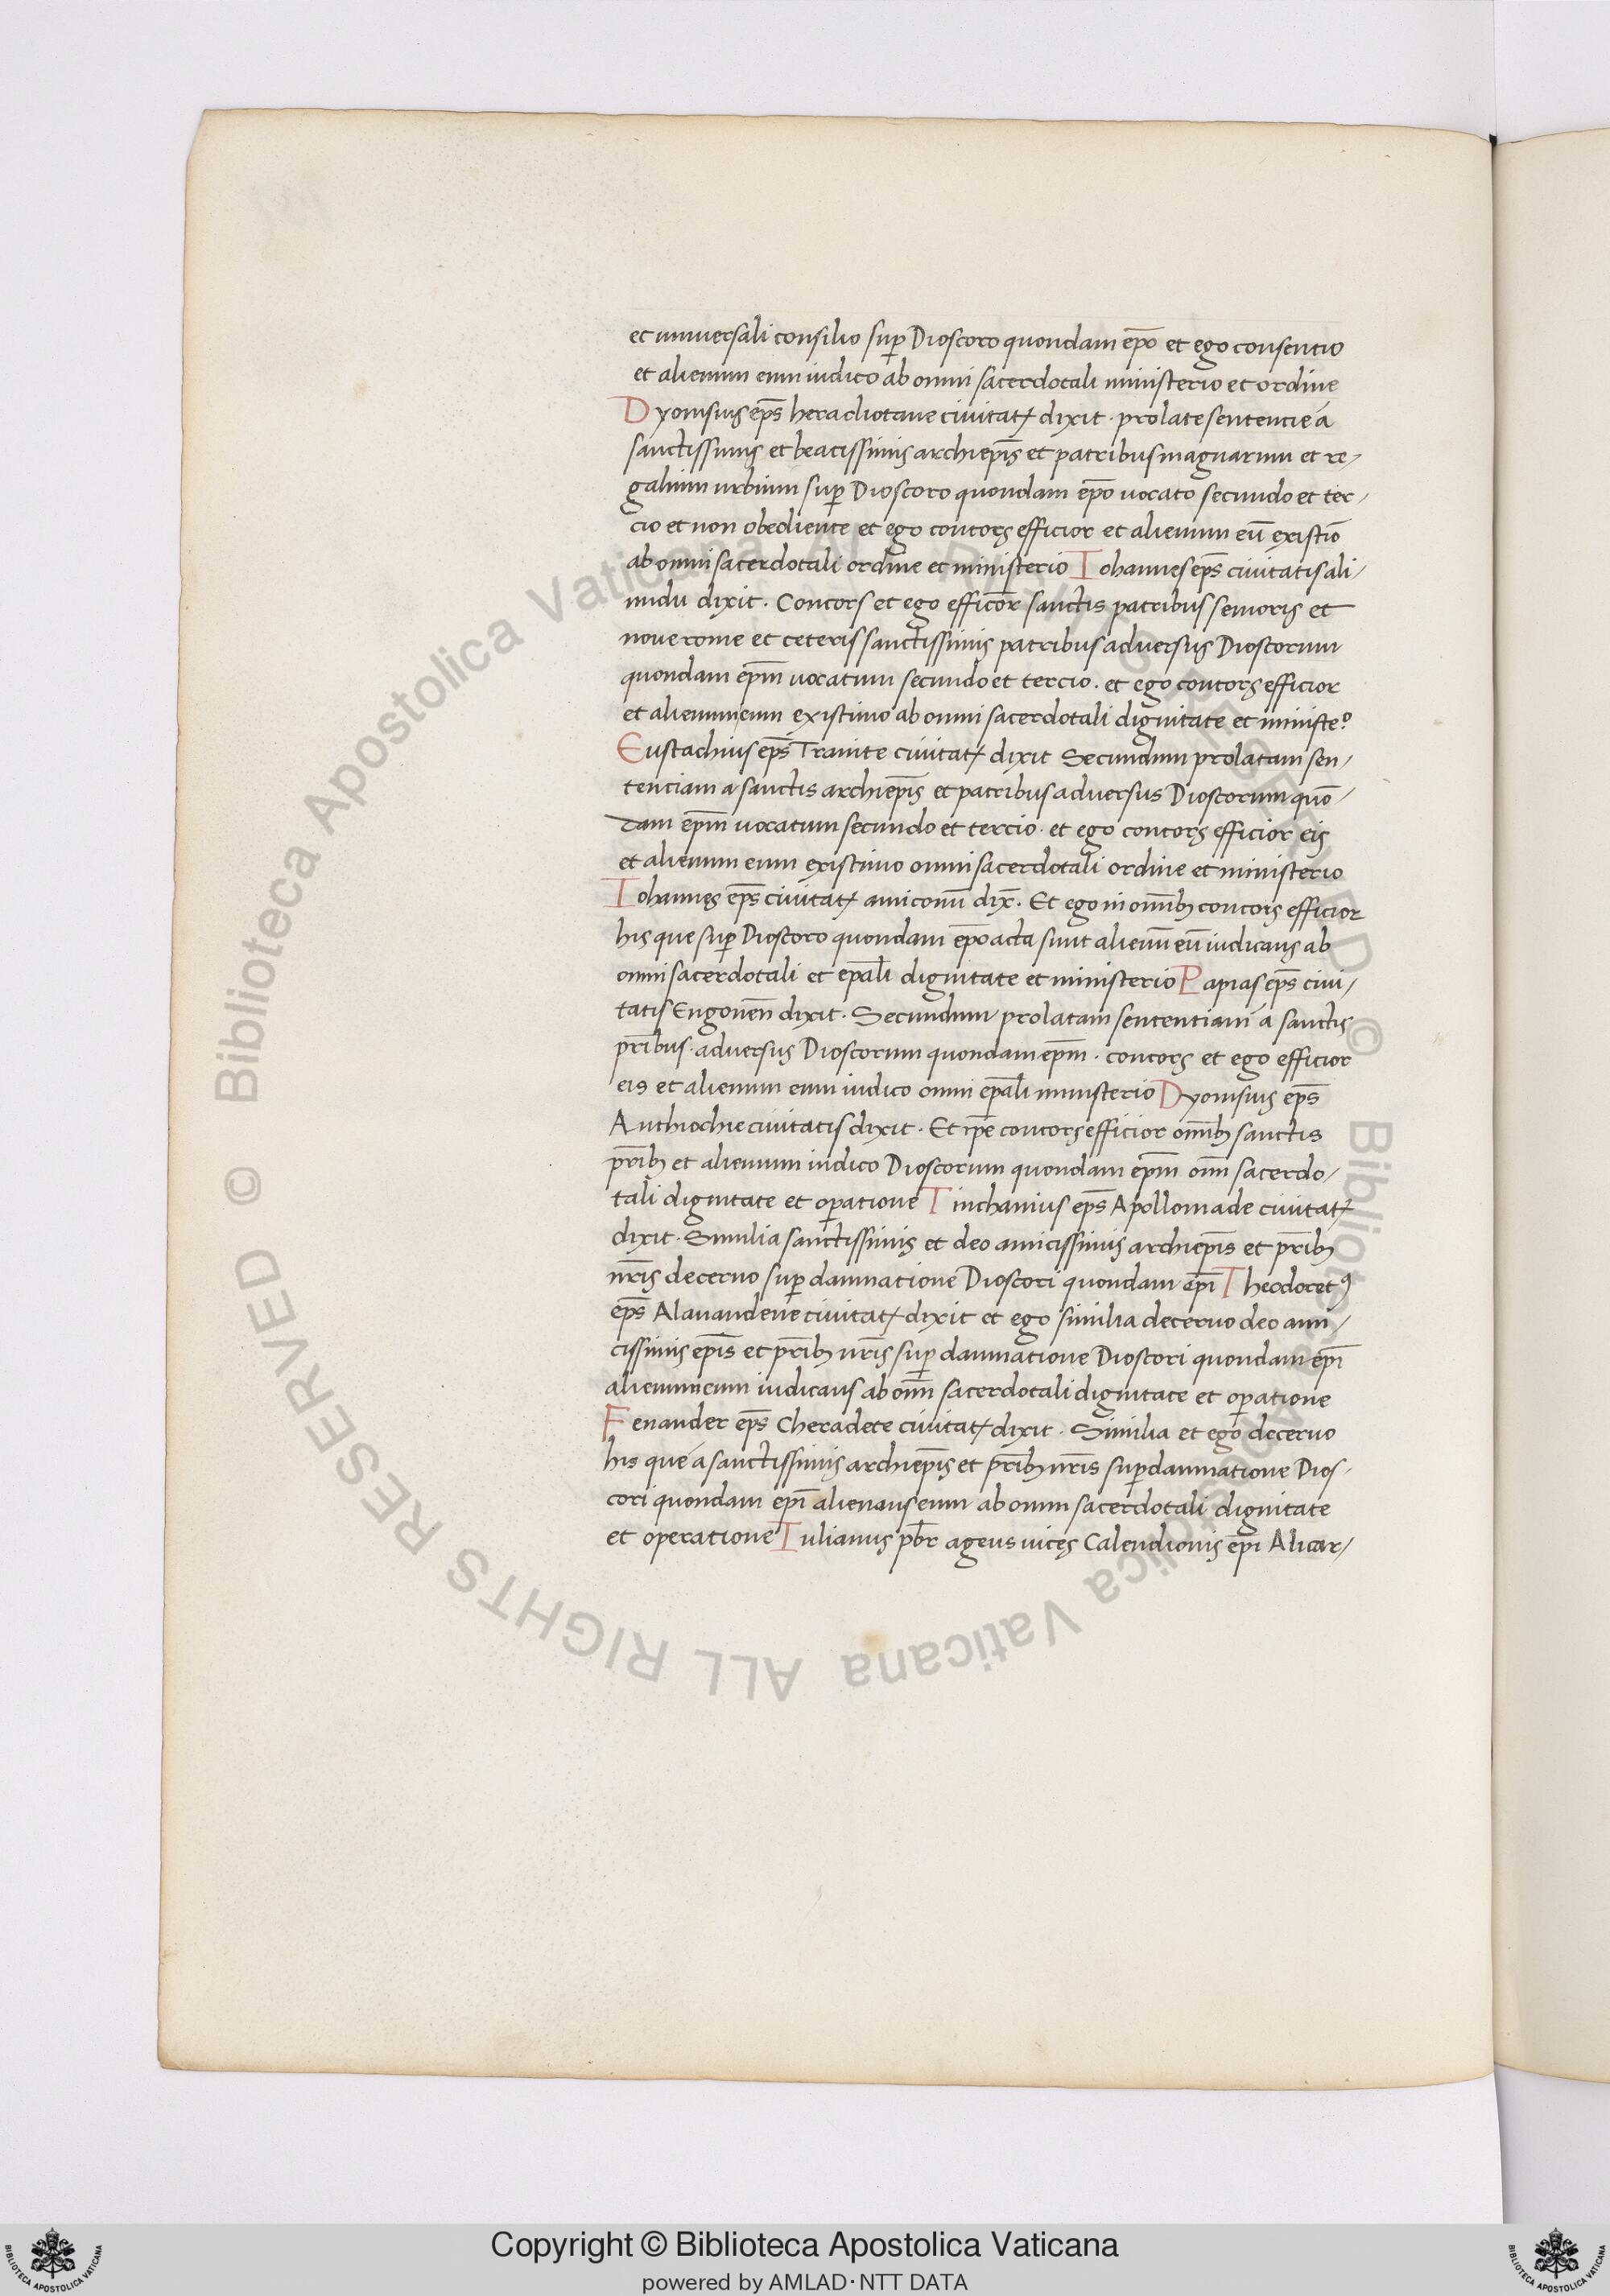 et universali consilio sup̱ Dioscoro quondam ep̄o et ego consentio
et alienum eum iudico ab omni sacerdotali ministerio et ordine
Dyonisius ep̄s heracliotane civitatꝝ dixit · prolate sentencie á
sanctissimis et beatissimis archiep̄is et patribus magnarum et re/
galium urbium sup̱ Dioscoro quondam ep̄o vocato secundo et ter/
cio et non obediente et ego concors efficior et alienum eū existīo
ab omni sacerdotali ordine et ministerio Iohannes ep̄s civitatis ali/
nudu dixit · Concors et ego efficior sanctis patribus senioris et
nove rome et ceteris sanctissimis patribus adversus Dioscorum
quondam ep̄m vocatum secundo et tercio · et ego concors efficior
et alienum eum existimo ab omni sacerdotali dignitate et ministeꝰ
Eustachius ep̄s Tranite civitatꝝ dixit Secundum prolatam sen/
tenciam a sanctis archiep̄is et patribus adversus Dioscorum quō/
dam ep̄m vocatum secundo et tercio · et ego concors efficior eis
et alienum eum existimo omni sacerdotali ordine et ministerio
Iohannes ep̄s civitatꝝ amiconū dix̄ · Et ego in om̄ibꝫ concors efficior
his que sup̱ Dioscoro quondam ep̄o acta sunt alienū eū iudicans ab
omni sacerdotali et ep̄ali dignitate et ministerio Papias ep̄s civi/
tatis Engonen̄ dixit · Secundum prolatam sententiam á sanctis
pr̄ibus · adversus Dioscorum quondam ep̄m · concors et ego efficior
eis et alienum eum iudico omni ep̄ali ministerio Dyonisius ep̄s
Anthiochie civitatis dixit · Et ip̄e concors efficior om̄ibꝫ sanctis
pr̄ibꝫ et alienum iudico Dioscorum quondam ep̄m om̄i sacerdo/
tali dignitate et op̱atione Tinchanius ep̄s Apolloniade civitatꝝ
dixit · Similia sanctissimis et deo amicissimis archiep̄is et pr̄ibꝫ
nr̄is decerno sup̱ damnatione Dioscori quondam ep̄i Theodoretꝰ
ep̄s Alavandene civitatꝝ dixit et ego similia decerno deo ami/
cissimis ep̄is et pr̄ibꝫ nr̄is sup̱ damnatione Dioscori quondam ep̄i
alienum eum iudicans ab om̄i sacerdotali dignitate et op̱atione
Fenander ep̄s Cheradete civitatꝝ dixit · Similia et ego decerno
his que á sanctissimis archiep̄is et pr̄ibꝫ nr̄is sup̱ damnatione Dios/
cori quondam ep̄i alienans eum ab omni sacerdotali dignitate
et operatione Iulianus pb̄r agens vices Calendionis ep̄i Alicar/
© Biblioteca Apostolica Vaticana ALL RIGHTS RESERVED © Biblioteca Apostolica Vaticana ALL RIGHTS RESERVED
Copyright © Biblioteca Apostolica Vaticana
powered by AMLAD·NTT DATA